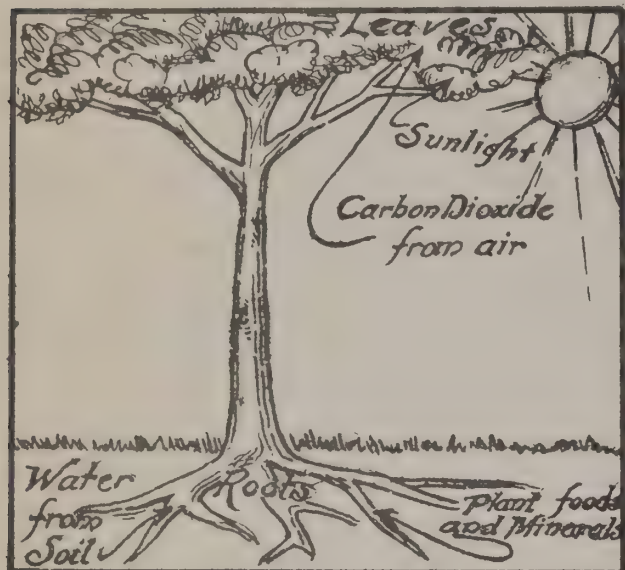 Leaves
Sunlight
Carbon Dioxide
from air
Roots
Water
from
Soil
Plant foods
and Minerals